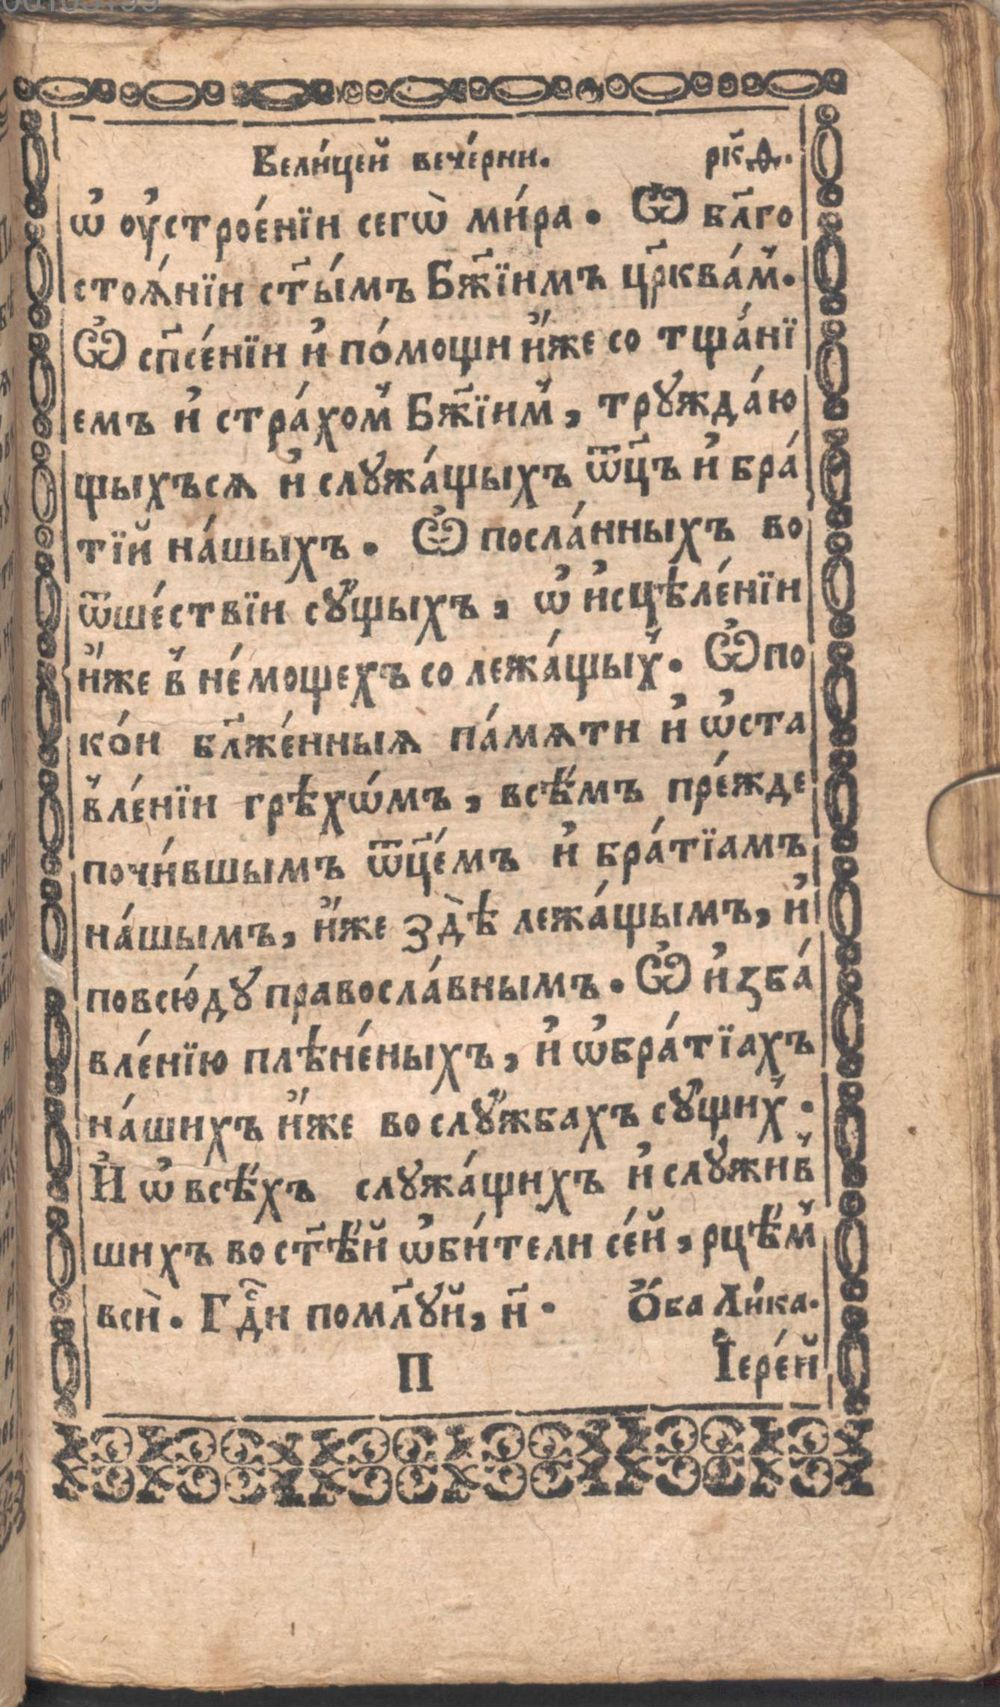 00103199
Вели́цей вече́рни. рк҃ѳ.
ѡ҆ оу҆строе́нїи сегѡ̀ ми́ра. Ѽ бл҃го
стоѧ́нїи ст҃ы́мъ Бж҃їимъ цр҃ква́м̾.
Ѽ сп҃се́нїи и҆ по́мощи и҆́же со тща́нї
емъ и҆ стра́хом̾ Бж҃їим̾, трꙋжда́ю
щыхъсѧ и҆ слꙋжа́щыхъ ѿц҃ъ и҆ бра́
тїй на́шыхъ. Ѽ посла́нныхъ во
ѿше́ствїи сꙋ́щыхъ, ѡ҆ и҆сцѣле́нїи
и҆́же в̾ не́мощехъ со лежа́щых̾. Ѽ по
ко́и бл҃же́нныѧ па́мѧти и҆ ѡ҆ста
в̾ле́нїи грѣхѡ́мъ, всѣ́мъ пре́жде
почи́вшымъ ѿц҃е́мъ и҆ бра́тїамъ
на́шымъ, и҆́же здѣ̀ лежа́щымъ, и҆
повсю́дꙋ правосла́внымъ. Ѽ и҆зба́
вле́нїю плѣне́ныхъ, и҆ ѡ҆бра́тїахъ
на́шихъ и҆́же во слꙋ́жбахъ сꙋ́щих̾.
И҆ ѡ҆ всѣ́хъ слꙋжа́щихъ и҆ слꙋжив̾
шихъ во ст҃ѣ́й ѡ҆би́тели се́й, рцѣ́м̾
вси̇̀. Гдⷭ҇и помл҃ꙋй, и҃. Ѻ҆́ба Ли́ка.
П І҆ере́й